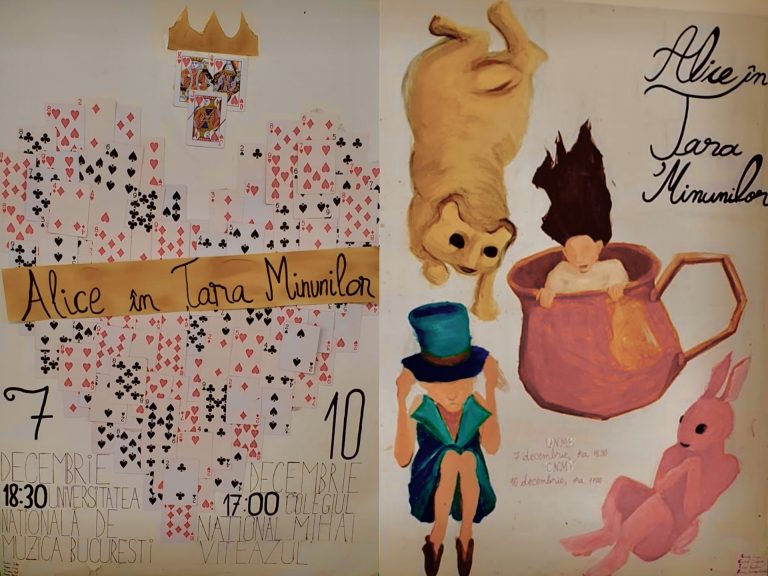 Alice în Țara Minunilor
7
DECEMBRIE
18:30 UNIVERSITATEA
NAȚIONALĂ DE
MUZICĂ BUCUREȘTI
10
DECEMBRIE
17:00 COLEGIUL
NAȚIONAL MIHAI
VITEAZUL
Alice în
Țara
Minunilor
UNMB
7 decembrie, ora 18:30
CNMV
10 decembrie, ora 17:00